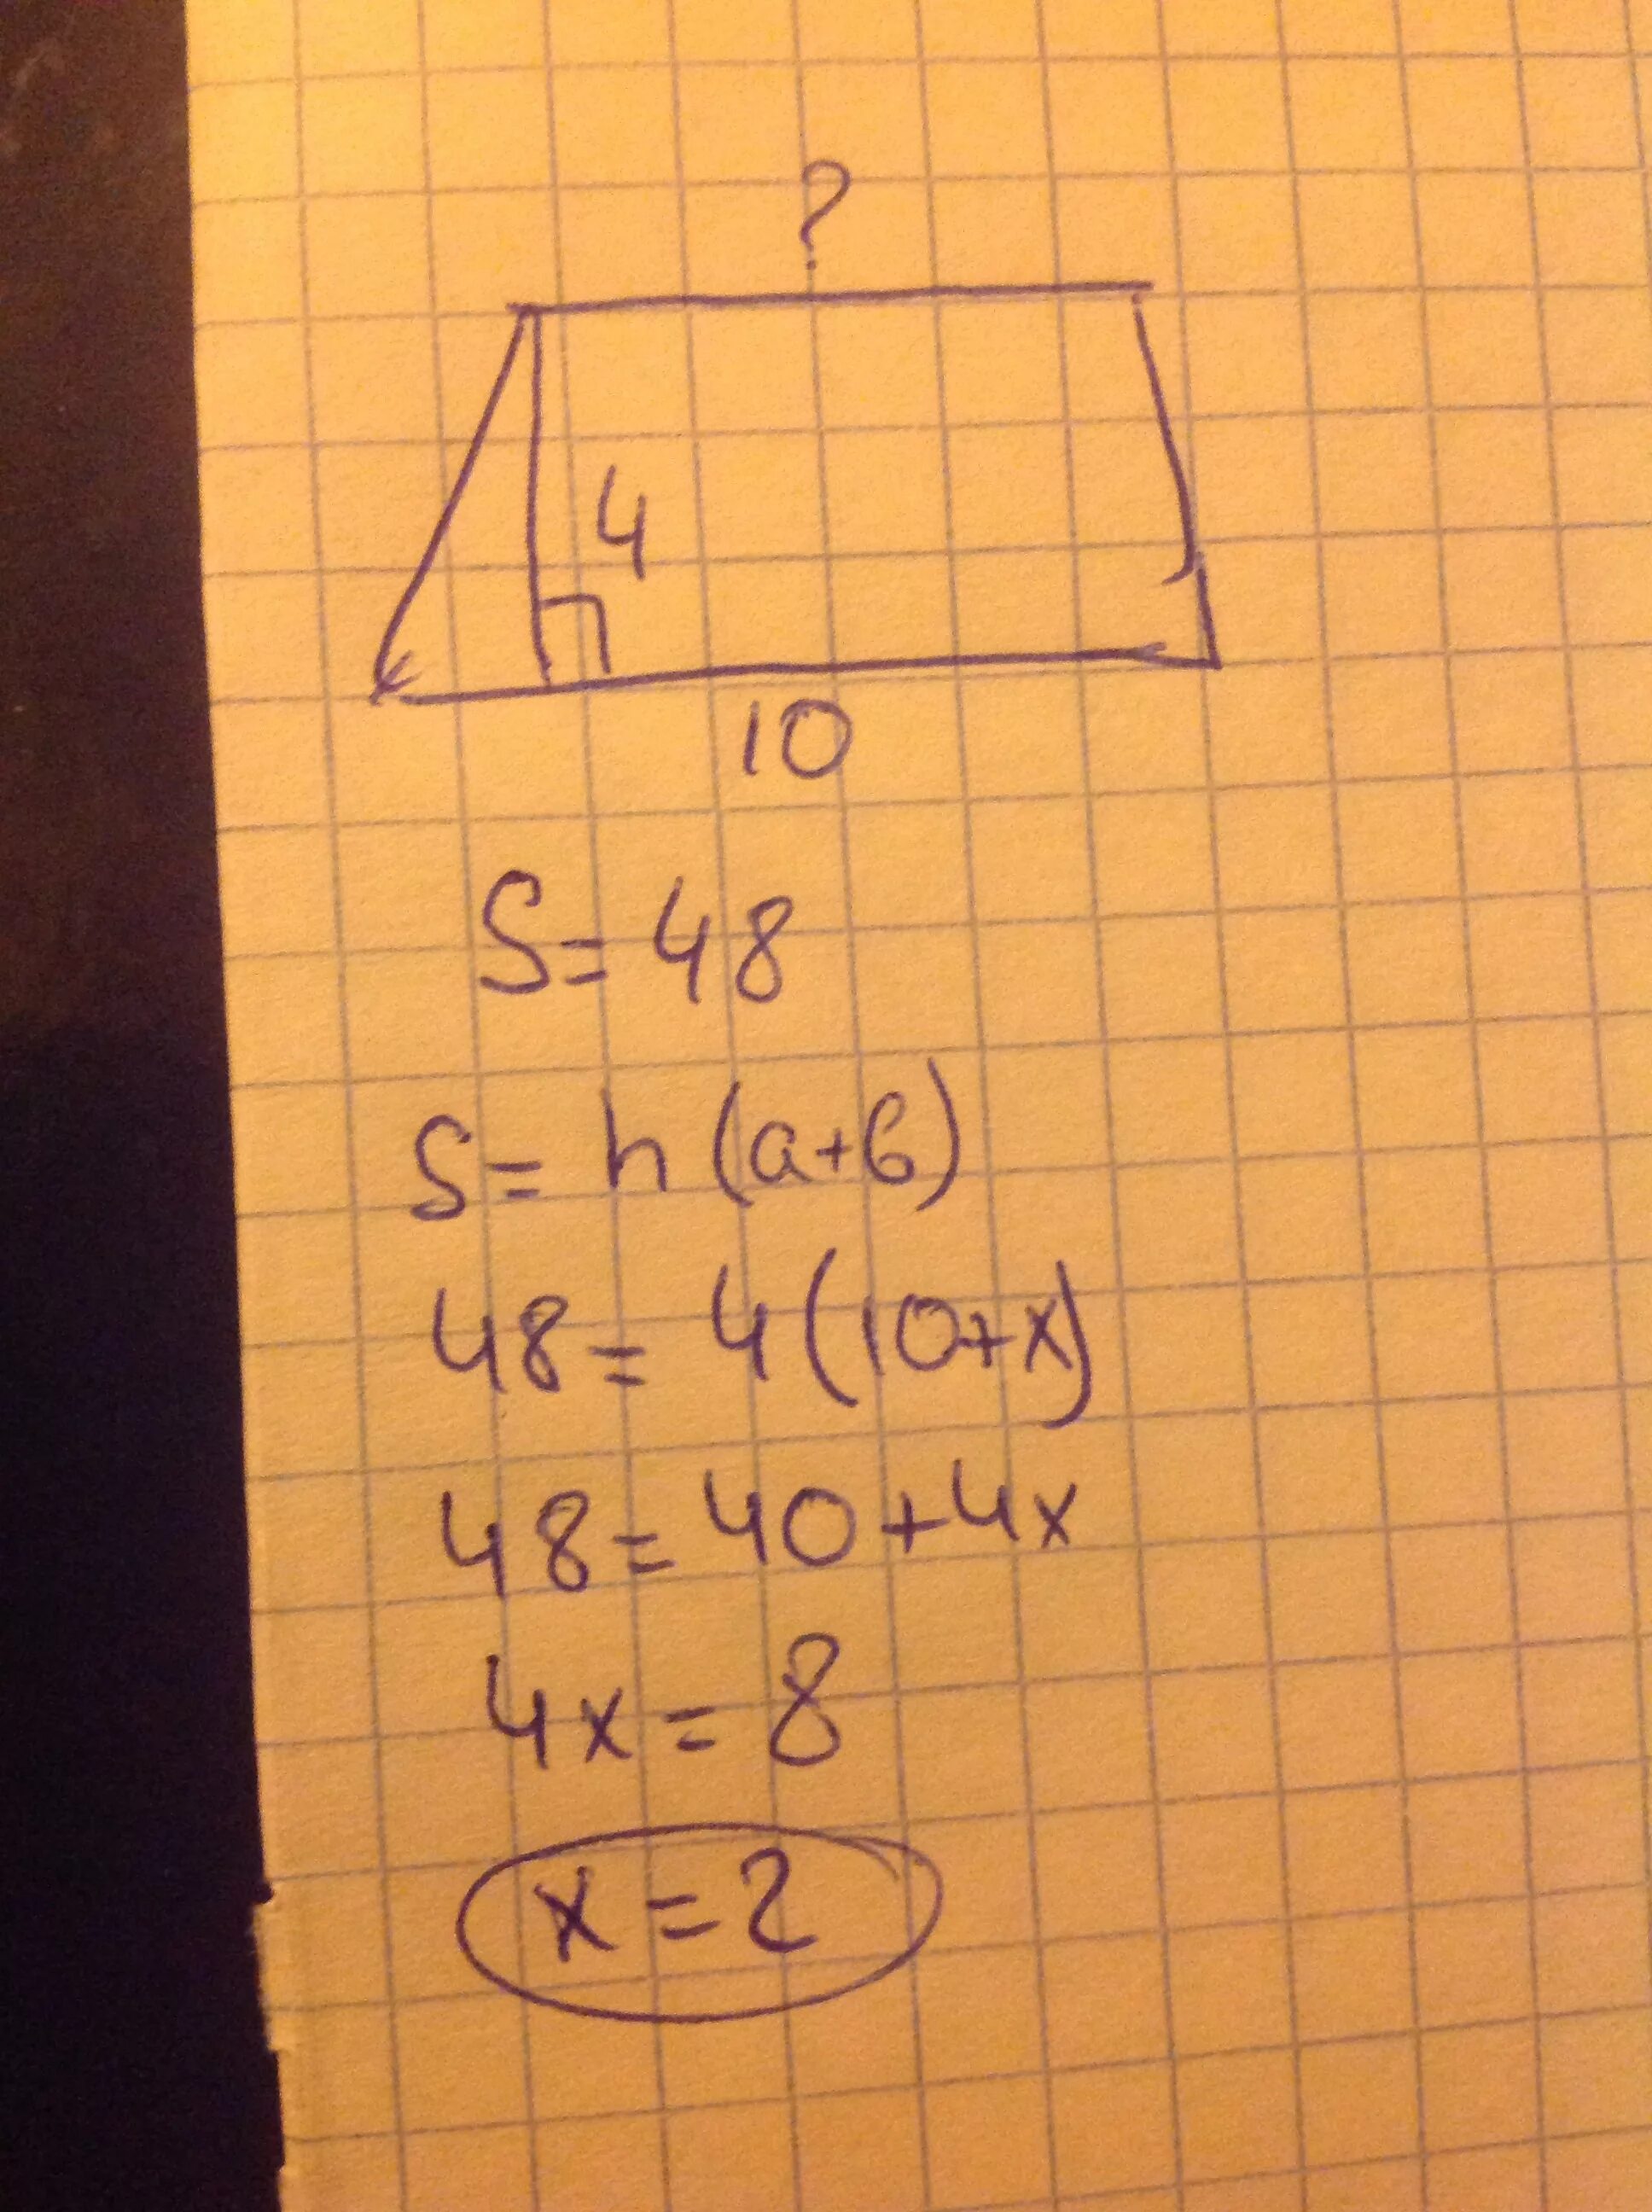 ?
4
10
S=48
S=h(a+b)
48=4(10+x)
48=40+4x
4x=8
x=2